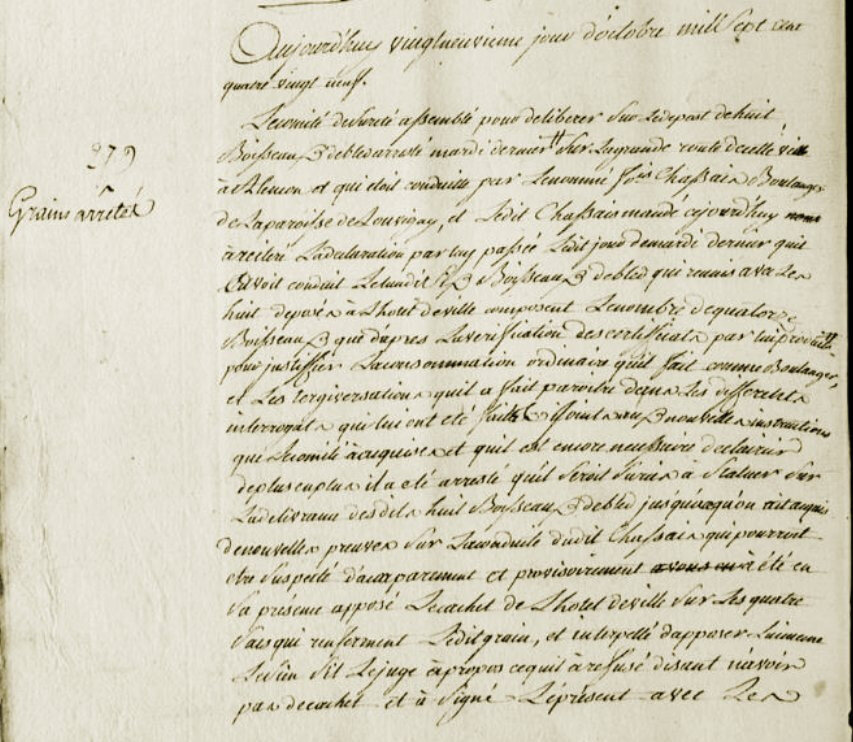 Aujourd'huy vingtneuvieme jour d'octobre mill sept cent
quatre vingt neuf.
Le comité de sureté assemblé pour deliberer sur le depost de huit
279
Boisseaux de bled arresté mardi dernier sur la grande route de cette ville
à Alencon et qui etoit conduitte par le nommé fois Chassais Boulanger
Grains arretés
de la paroisse de Louvigny, et ledit Chassais mandé cejourd'huy
à reiteré la declaration par luy passée ledit jour de mardi dernier quil
avoit conduit le lundi six Boisseaux de bled qui reunis avec les
huit deposés à l'hotel de ville composent le nombre de quatorze
Boisseaux que d'apres la verification des certifficats par lui produits
pour justiffier la consommation ordinaire quil fait comme Boulanger,
et les tergiversations quil a fait paroitre dans les differents
interrogats qui lui ont été faits joint aux nouvelles instructions
que le comité à acquises et quil est encore necessaire d'eclaircir
de plus en plus il a été arresté qu'il seroit sursis à statuer sur
la delivrance desdits huit Boisseaux de bled jusqu'à qu'on ait acquis
de nouvelles preuves sur la conduite dudit Chassais qui pourroit
etre suspecté d'acarparement et provisoirement avons à été en
sa présence apposé le cachet de l'hotel de ville sur les quatre
sacs qui renferment ledit grain, et interpellé d'apposer lui meme
le sien s'il le juge à propos ce quil à refusé disant n'avoir
pas de cachet et à signé le présent avec les